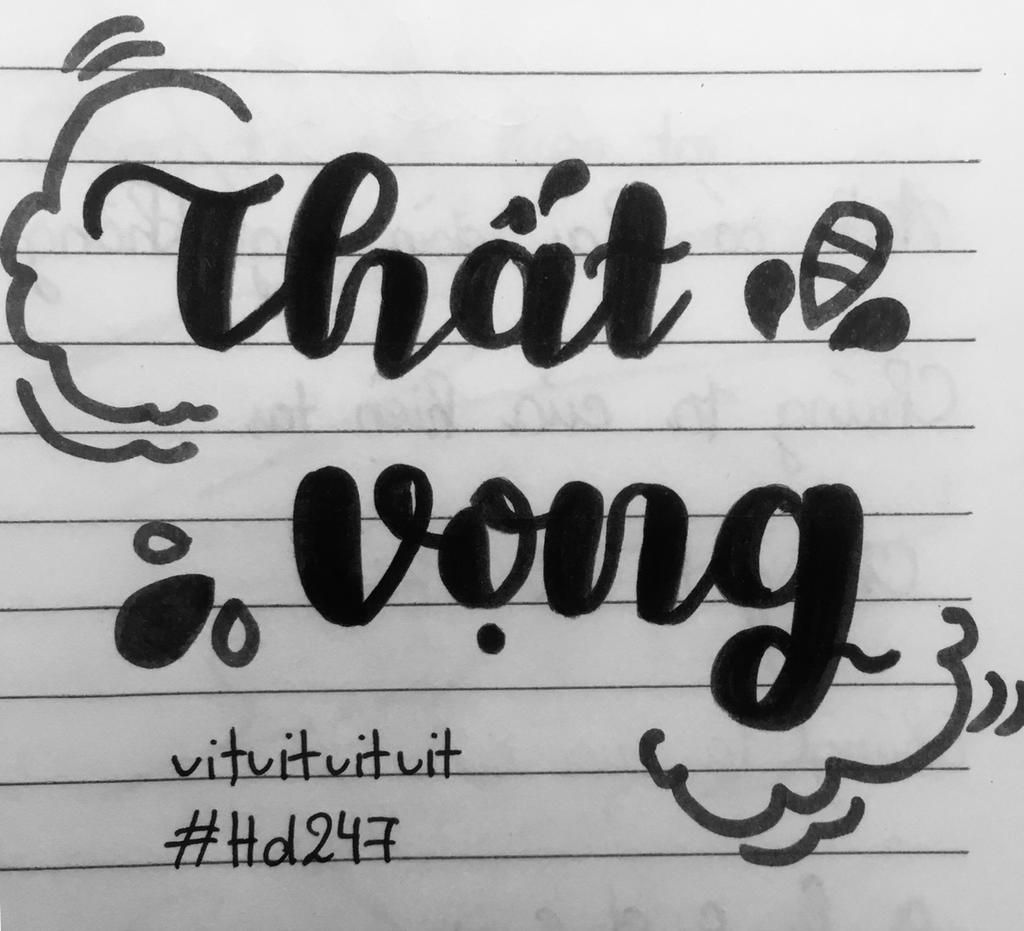 Thất
vọng
vituituituit
#Hd247